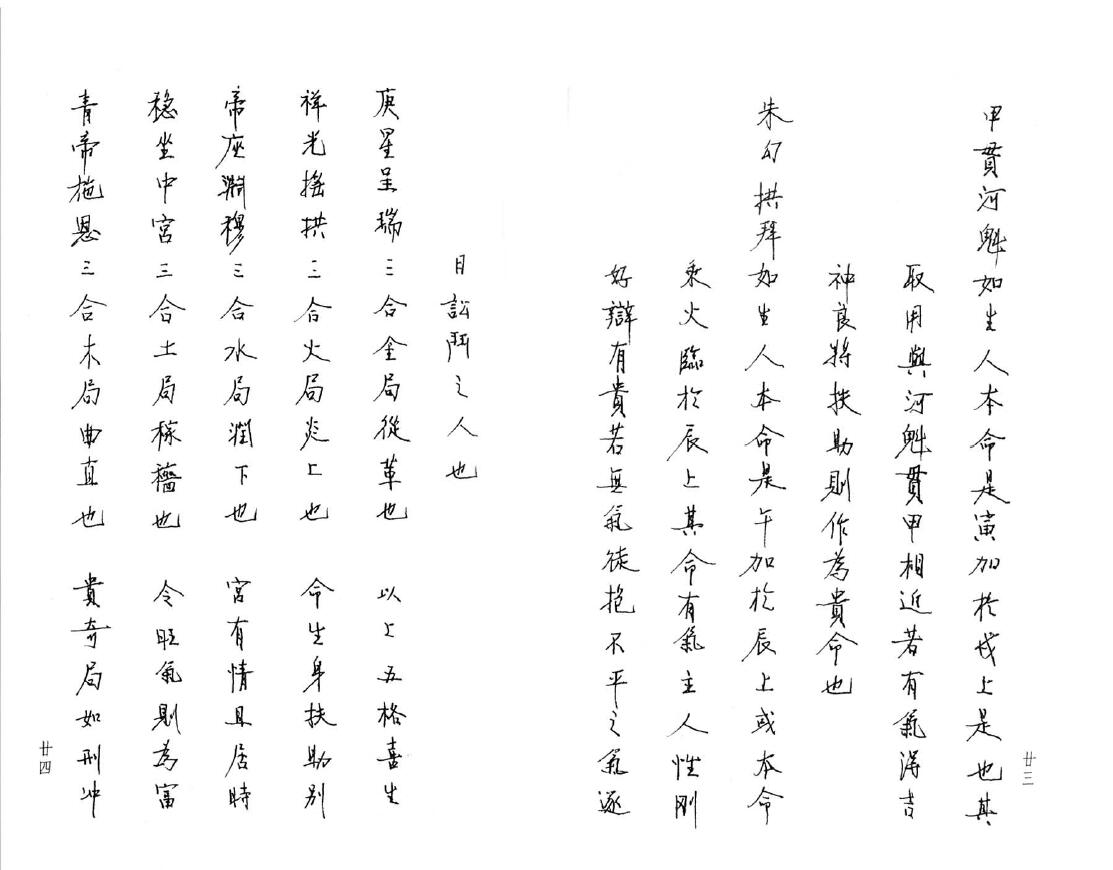 甲貫河魁如生人本命是寅加於戌上是也其
取用與河魁貫甲相近若有氣得吉
神良將扶助則作為貴命也
朱勾拱拜如生人本命是午加於辰上或本命
乘火臨於辰上其命有氣主人性剛
好辯有貴若無氣徒抱不平之氣逐
廿三
日訟鬥之人也
庚星呈瑞三合金局從革也 以上五格喜生
祥光搖拱三合火局炎上也 命生身扶助别
帝座淵穆三合水局潤下也 宮有情且居時
穩坐中宮三合土局稼穡也 令旺氣則為富
青帝施恩三合木局曲直也 貴奇局如刑冲
廿四